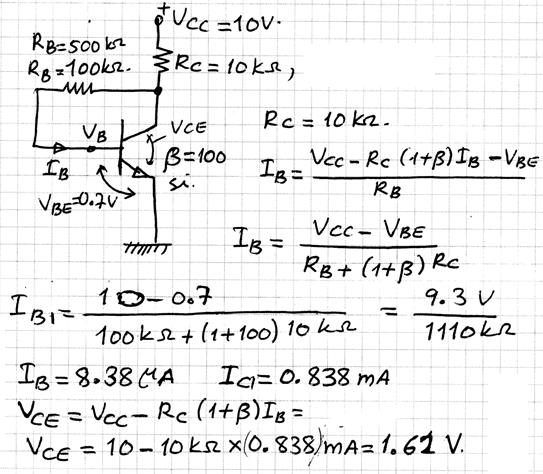 +VCC = 10V.
RB=500kΩ
RB=100kΩ.
RC = 10 kΩ,
VB
VCE
β=100
si.
IB
VBE=0.7V
RC = 10 kΩ.
IB = VCC - RC (1+β) IB - VBE / RB
IB = VCC - VBE / RB + (1+β) RC
IB1 = 10 - 0.7 / 100 kΩ + (1+100) 10 kΩ = 9.3 V / 1110 kΩ
IB = 8.38 μA IC1 = 0.838 mA
VCE = VCC - RC (1+β) IB =
VCE = 10 - 10 kΩ × (0.838) mA = 1.61 V.